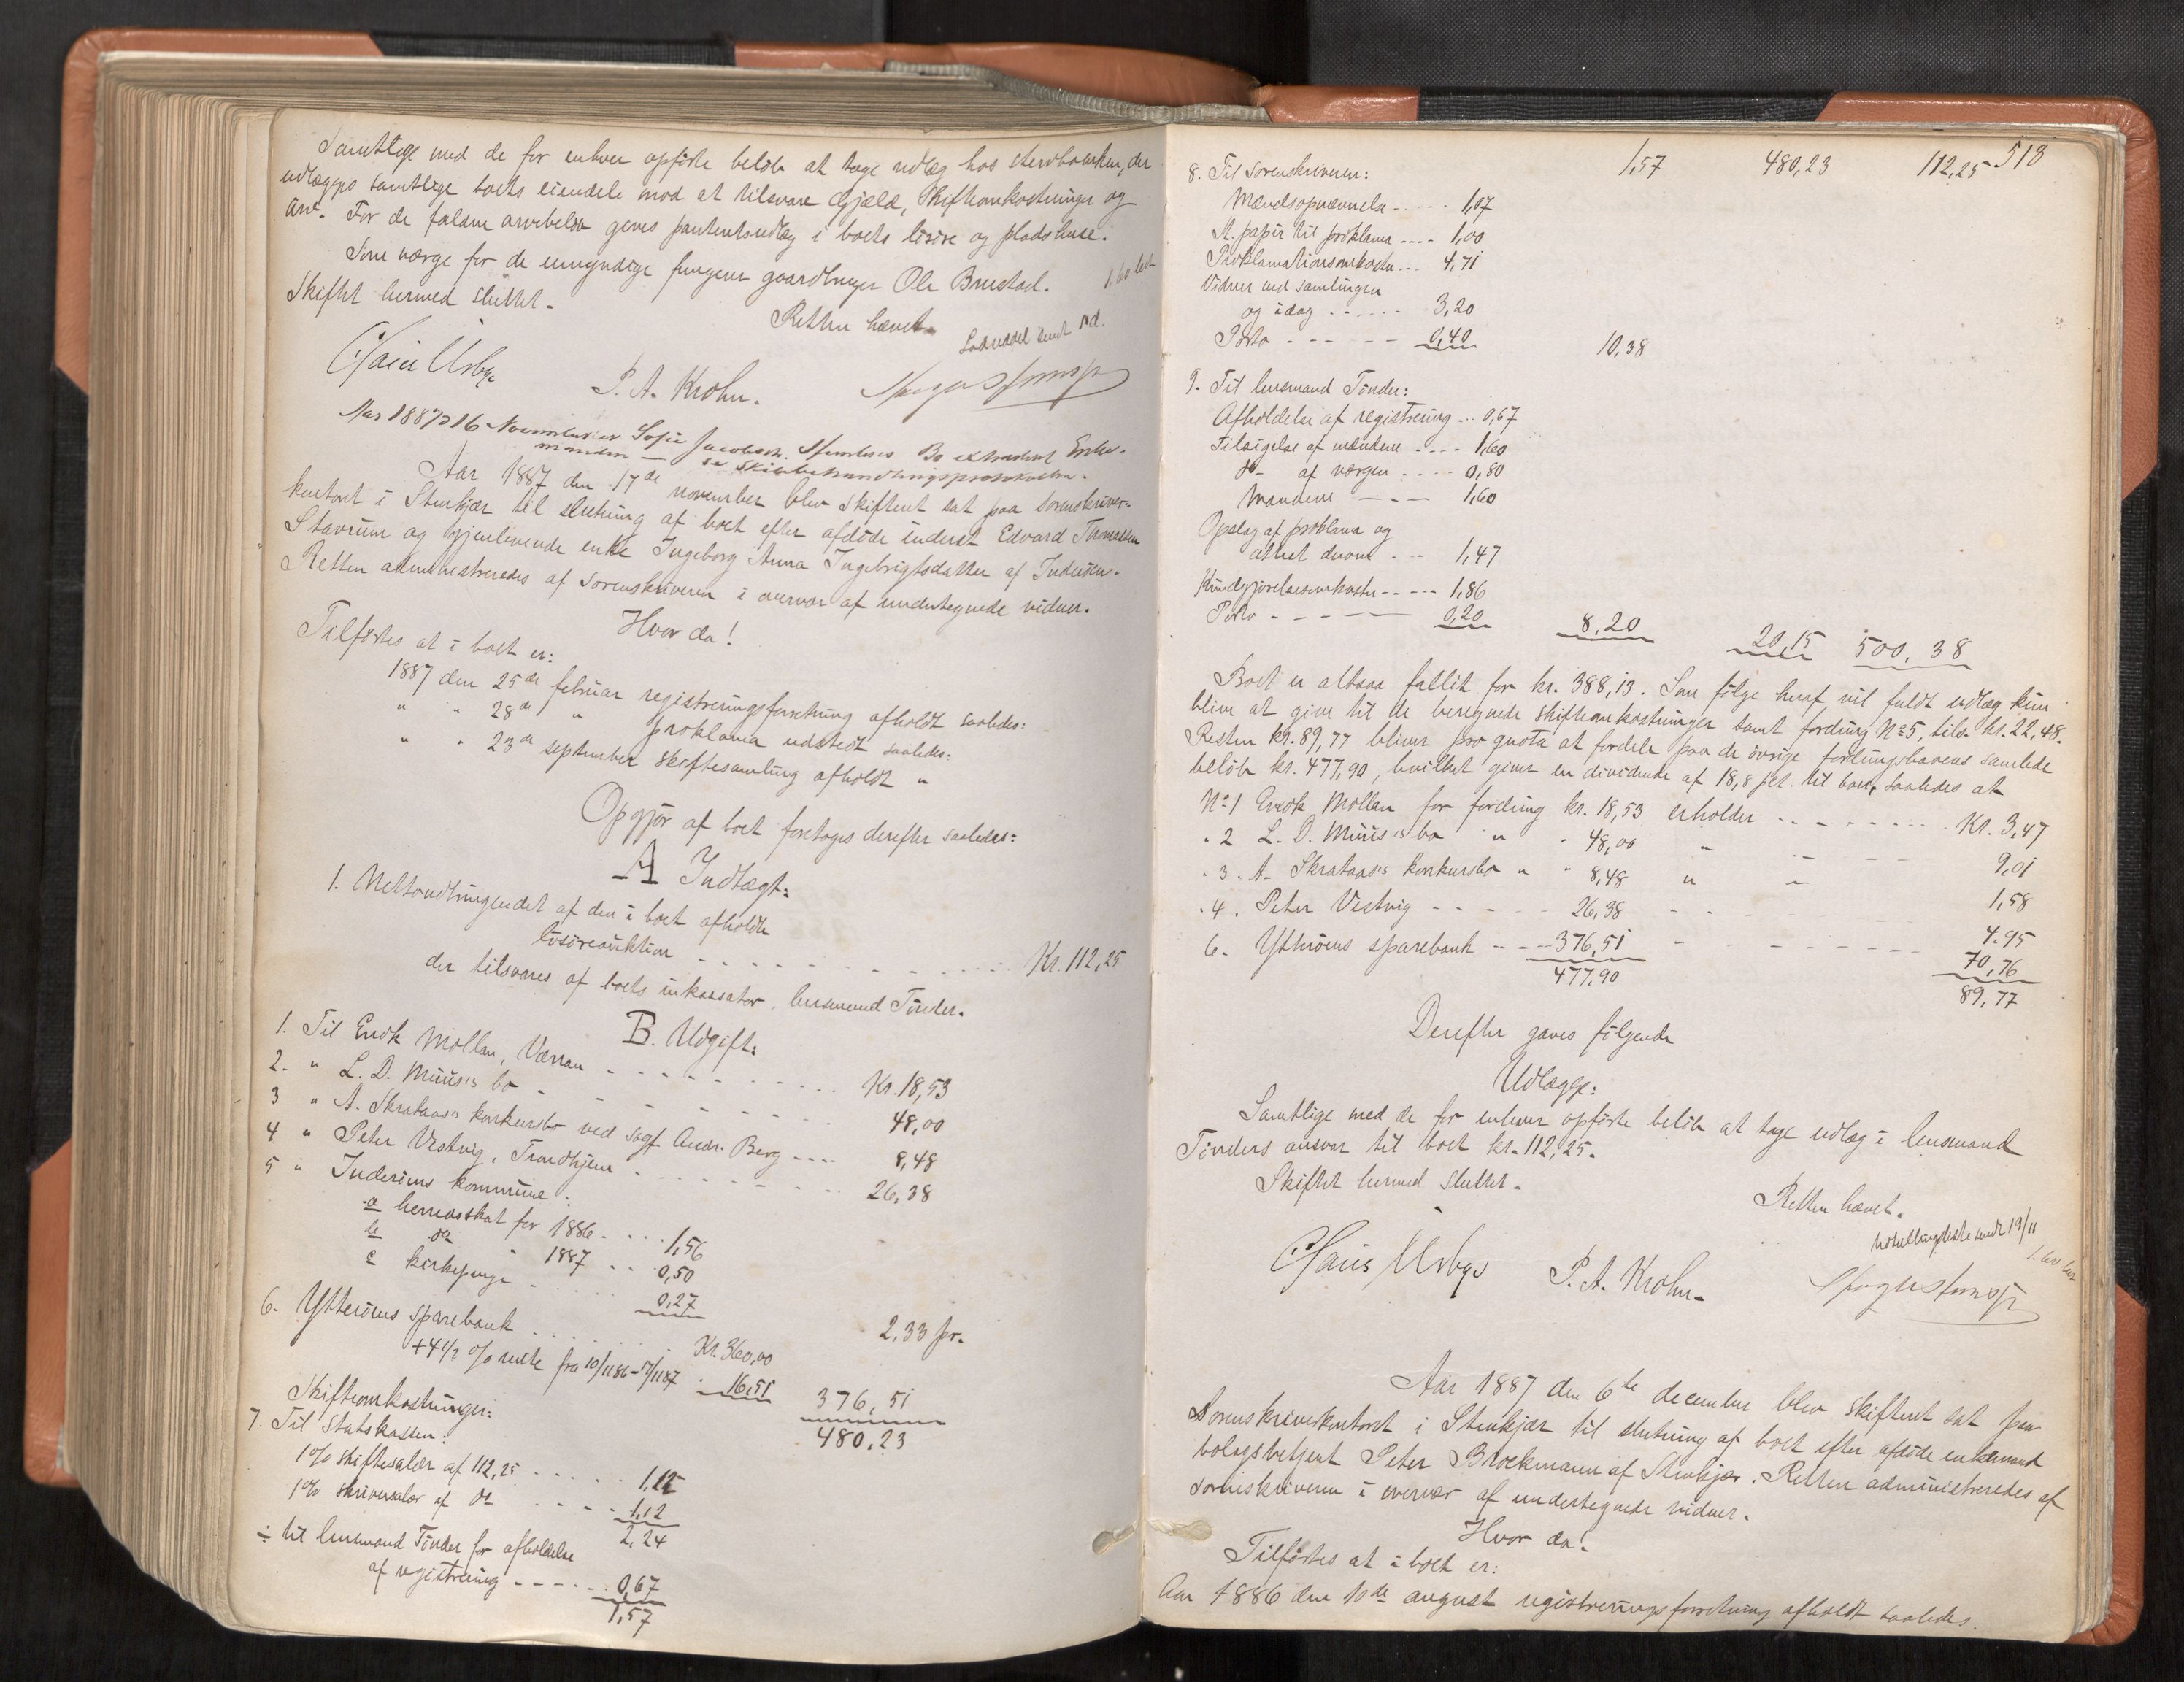 Samtlige med de for enhver opførte beløb at tage udlæg hos sterbboenken, der
udlægges samtlige boets eiendele mod at tilsvare gjæld, skifteomkostninger og
arv. For de faldne arvebeløb gives panteretsudlæg i boets løsøre og pladshuse.
Som værge for de umyndige fungerer gaardbruger Ole Brustad.
Skiftet hermed sluttet.
Retten hævet.
Lodseddel sendt s.d.
Claus Urbye P. A. Krohn.
Aar 1887 d 16 November er Sofie Jacobsen Bo extraderet Enke-
manden se Skiltbehandlingsprotokollen.
Aar 1887 den 17de november blev skifteret sat paa sorenskriver-
kontoret i Stenkjær til slutning af boet efter afdøde inderst Edvard Thomassen
Stavrum og gjenlevende enke Ingeborg Anna Ingebrigtsdatter af Inderøen.
Retten administreredes af sorenskriveren i overvær af undertegnede vidner.
Hvor da!
Tilførtes at i boet er:
1887 den 25de februar registreringsforretning afholdt saaledes:
" " 28de " proklama udstedt saaledes:
" " 23de september skiftesamling afholdt "
Opgjør af boet foretages derefter saaledes:
A Indtægt:
1. Nettoudbringendet af den i boet afholdte
løsøreauktion - - - Kr. 112,25
der tilsvares af boets inkassator, lensmand Tinder.
B. Udgift:
1. Til Endk Mollan, Værran - - - Kr. 18,53
2. " L. D. Müüs's bo - - - 48,00
3 " A. Skrataas's konkursbo ved sagf. Andr. Berg - - - 8,48
4 " Peter Vestvig, Trondhjem - - - 26,38
5 " Inderøens kommune:
a herredsskat for 1886 - - - 1,56
b do " 1887 - - - 0,50
c kirkepenge - - - 0,27
2,33 pr.
6. Ytterøens sparebank - - - Kr. 360,00
+ 4½ % rente fra 10/11 86 - 17/11 87 - 16,51 376,51
480,23
Skifteomkostninger:
7. Til Statskassen:
1 % skiftesalær af 112,25 - - - 1,12
1 % skriversalær af do - - - 1,12
2,24
÷ til lensmand Tinder for afholdelse
af registrering - - - 0,67
1,57
518
1,57 480,23 112,25
8. Til sorenskriveren:
Mændsopnævnelse - - - 1,07
St. papir til proklama - - - 1,00
Proklamationsomkostn. - - - 4,71
Vidner ved samlingen
og idag - - - 3,20
Porto - - - 0,40 10,38
9. Til lensmand Tinder:
Afholdelse af registrering - - - 0,67
Tilsigelse af mændene - - - 1,60
do - af værgen - - - 0,80
Mændene - - - 1,60
Opslag af proklama og
attest derom - - - 1,47
Kundgjørelsesomkostn. - - - 1,86
Porto - - - 0,20 8,20 20,15 500,38
Boet er altsaa fallit for kr. 388,13. Som følge heraf vil fuldt udlæg kun
blive at give til de beregnede skifteomkostninger samt fordring No 5, tils. kr. 22,48.
Resten kr. 89,77 bliver pro quota at fordele paa de øvrige fordringshaveres samlede
beløb kr. 477,90, hvilket giver en dividende af 18,8 pct. til boet, saaledes at
No 1 Endk Mollan for fordring kr. 18,53 erholder - - - Kr. 3,47
" 2 L. D. Müüs's bo " " 48,00 " - - - 9,01
" 3. A. Skrataas's konkursbo " " 8,48 " - - - 1,58
" 4. Peter Vestvig - - - 26,38 - - - 4,95
6. Ytterøens sparebank - - - 376,51 - - - 70,76
477,90 89,77
Derefter gaves følgende
Udlægge:
Samtlige med de for enhver opførte beløb at tage udlæg i lensmand
Tinders ansvar til boet kr. 112,25.
Skiftet hermed sluttet.
Retten hævet.
Udlodningsliste sendt 19/11
Claus Urbye P. A. Krohn.
Aar 1887 den 6te december blev skifteret sat paa
sorenskriverkontoret i Stenkjær til slutning af boet efter afdøde enkemand
bolagsbetjent Peter Brockmann af Stenkjær. Retten administreredes af
sorenskriveren i overvær af undertegnede vidner.
Hvor da!
Tilførtes at i boet er:
Aar 1886 den 10de august registreringsforretning afholdt saaledes.